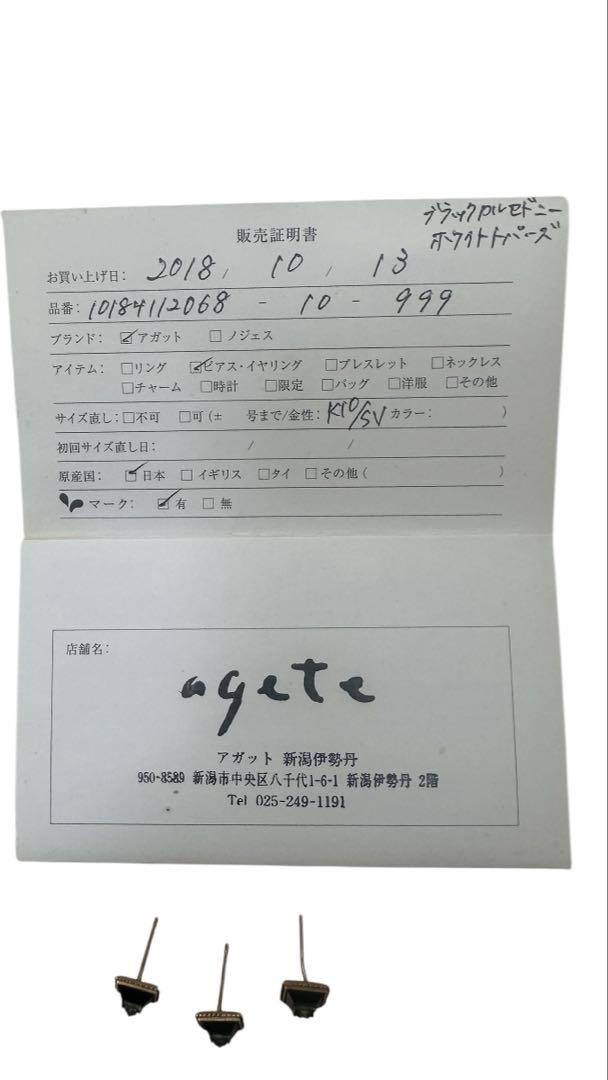 ブラックカルセドニー
ホワイトトパーズ
販売証明書
お買い上げ日: 2018 / 10 / 13
品番: 10184112068 - 10 - 999
ブランド: ☑アガット □ノジェス
アイテム: □リング ☑ピアス・イヤリング □ブレスレット □ネックレス
□チャーム □時計 □限定 □バッグ □洋服 □その他
サイズ直し: □不可 □可(± 号まで/金性: K10/SV カラー: )
初回サイズ直し日: / /
原産国: ☑日本 □イギリス □タイ □その他( )
マーク: ☑有 □無
店舗名:
agete
アガット 新潟伊勢丹
950-8589 新潟市中央区八千代1-6-1 新潟伊勢丹 2階
Tel 025-249-1191